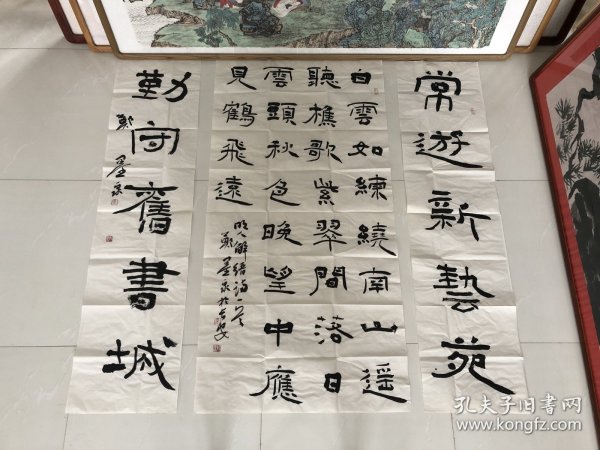 常遊新藝苑
白雲如練繞南山遥
聽樵歌紫翠間落日
雲頭秋色晚望中應
見鶴飛遠
明人解縉詩一首
勤守舊書城
孔夫子旧书网
www.kongfz.com